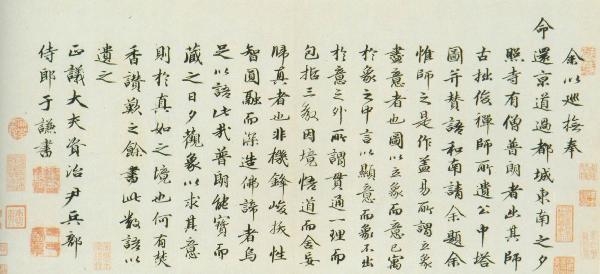 余以巡撫奉
命還京道過都城東南之夕
照寺有僧普朗者出其師
古拙俊禪師所遺公中塔
圖并贊語和南請余題余
惟師之是作蓋易所謂立象
盡意者也圖以立象而意已寓
於象之中言以顯意而象不出
於意之外所謂貫通一理而
包括三教因境悟道而舍妄
歸真者也非機鋒峻捷性
智圓融而深造佛諦者烏
足以語此哉普朗能寶而
藏之日夕觀象以求其意
則於真如之境也何有焚
香讚歎之餘書此數語以
遺之
正議大夫資治尹兵部
侍郎于謙書